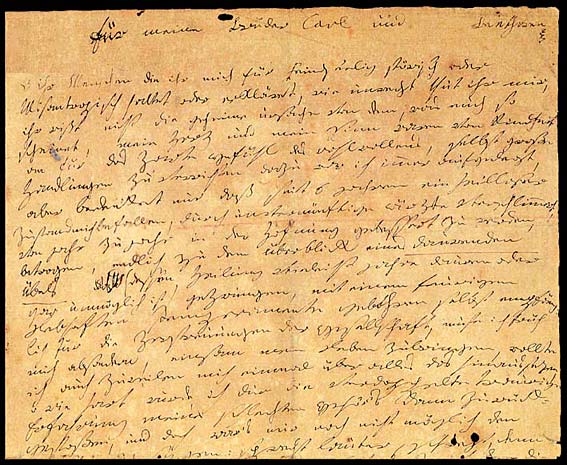 für meine Brüder Carl und Beethowen
o ihr Menschen die ihr mich für Feindseelig störisch oder
Misantropisch haltet oder erkläret, wie unrecht thut ihr mir,
ihr wißt nicht die geheime urßache von dem, was euch so
scheinet, mein Herz und mein Sinn waren von Kindheit
an für das Zarte Gefühl des wohlwollens, selbst große
Handlungen zu verrichten dazu war ich immer aufgelegt,
aber bedenket nur daß seit 6 jahren ein heilloser
Zustand mich befallen, durch unvernünftige ärzte verschlimmert,
von jahr zu jahr in der Hofnung gebessert zu werden,
betrogen, endlich zu dem überblick eines daurenden
Übels dessen Heilung vieleicht jahre dauren oder
gar unmöglich ist, gezwungen, mit einem feurigen
Lebhaften Temperamente gebohren selbst empfäng-
lich für die Zerstreuungen der Gesellschaft, muste ich früh
mich absondern, einsam mein Leben zubringen, wollte
ich auch zuweilen mich einmal über alles das hinaussezen,
o wie hart wurde ich dur die verdoppelte traurige
Erfahrung meines schlechten Gehör's dann zurück-
gestoßen, und doch war's mir noch nicht möglich den
sprecht lauter, schreyt, denn